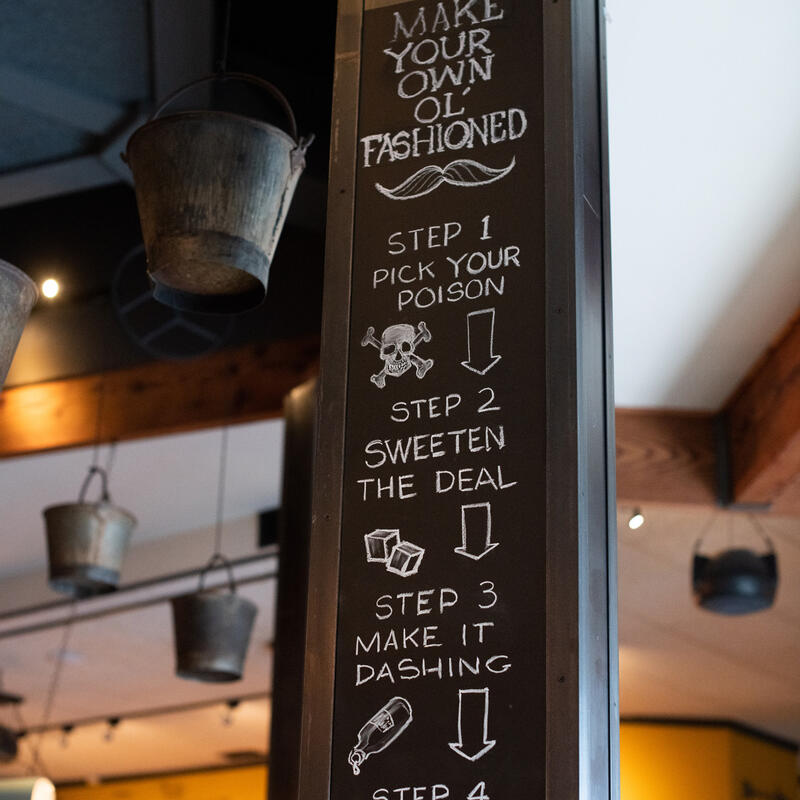 MAKE
YOUR
OWN
OL'
FASHIONED
STEP 1
PICK YOUR
POISON
STEP 2
SWEETEN
THE DEAL
STEP 3
MAKE IT
DASHING
STEP 4